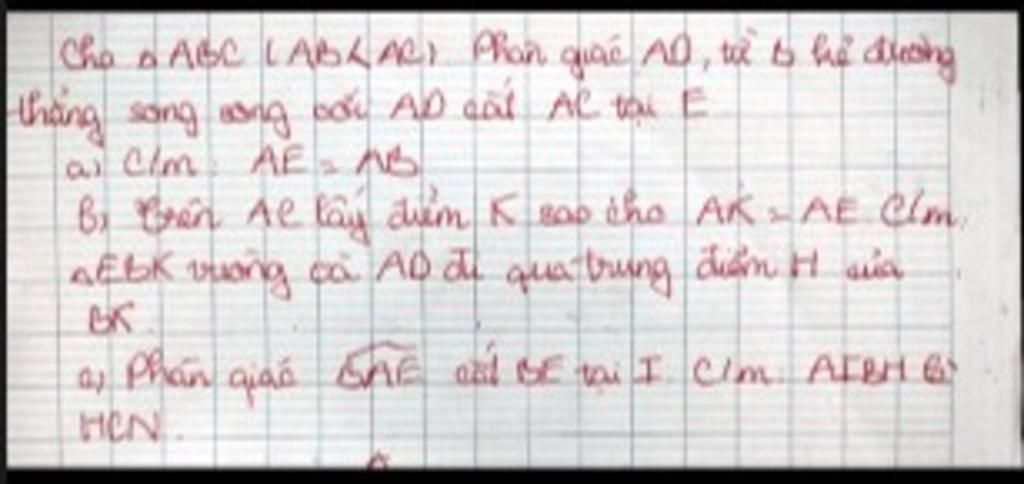 Cho Δ ABC (AB < AC) Phân giác AD, từ B kẻ đường
thẳng song song với AD cắt AC tại E
a) C/m: AE = AB
b) Trên AC lấy điểm K sao cho AK = AE C/m
ΔEBK vuông và AD đi qua trung điểm H của
BK.
c) Phân giác BAE cắt BE tại I C/m AIBH là
HCN.